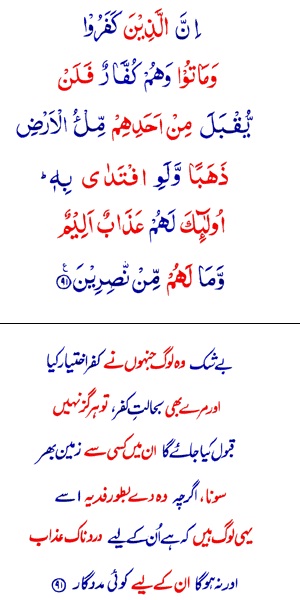 اِنَّ الَّذِيْنَ كَفَرُوْا
وَمَاتُوْا وَهُمْ كُفَّارٌ فَلَنْ
يُّقْبَلَ مِنْ اَحَدِهِمْ مِّلْءُ الْاَرْضِ
ذَهَبًا وَّلَوِ افْتَدٰى بِهٖؕ
اُولٰٓئِكَ لَهُمْ عَذَابٌ اَلِيْمٌ
وَّمَا لَهُمْ مِّنْ نّٰصِرِيْنَ ࣖ ﴿٩١﴾
بے شک وہ لوگ جنہوں نے کفر اختیار کیا
اور مرے بھی بحالتِ کفر، تو ہرگز نہیں
قبول کیا جائے گا ان میں کسی سے زمین بھر
سونا، اگرچہ وہ دے بطور فدیہ اسے
یہی لوگ ہیں کہ ہے اُن کے لیے دردناک عذاب
اور نہ ہوگا ان کے لیے کوئی مددگار ﴿٩١﴾